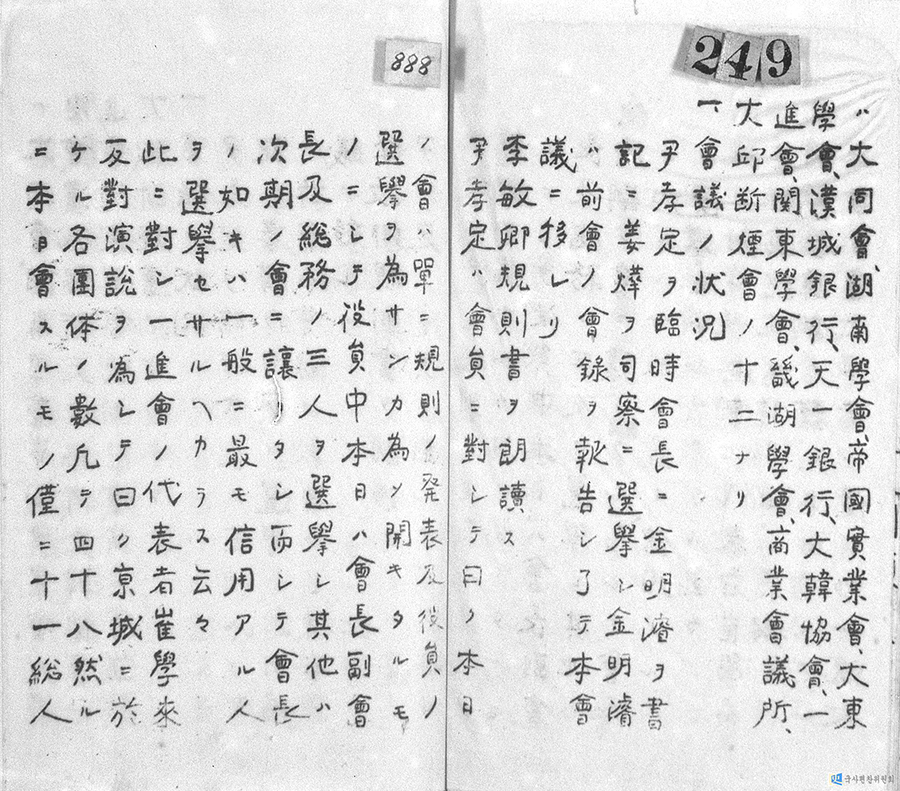 249
ハ大同會、湖南學會、帝國實業會、大東
學會、漢城銀行、天一銀行、大韓協會、一
進會、関東學會、畿湖學會、商業會議所、
大邱断煙會ノ十二ナリ
一、會議ノ状况
尹孝定ヲ臨時會長ニ金明濬ヲ書
記ニ姜燁ヲ司察ニ選擧シ金明濬
ハ前會ノ會録ヲ報告シ了テ本會
議ニ移レリ
李敏卿規則書ヲ朗讀ス
尹孝定ハ會員ニ對シテ曰ク本日
888
ノ會ハ單ニ規則ノ発表及役員ノ
選擧ヲ為サンカ為メ開キタルモ
ノニシテ役員中本日ハ會長副會
長及総務ノ三人ヲ選擧シ其他ハ
次期ノ會ニ讓リタシ而シテ會長
ノ如キハ一般ニ最モ信用アル人
ヲ選擧セサルヘカラス云々
此ニ對シ一進會ノ代表者崔學來
反對演説ヲ為シテ曰ク京城ニ於
ケル各團体ノ數凡テ四十八然ル
ニ本日會スルモノ僅ニ十一総人
국사편찬위원회